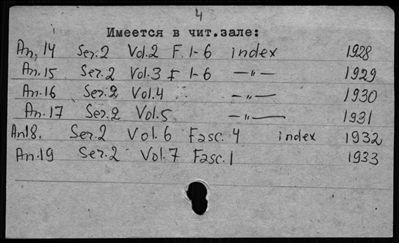 4
Имеется в чит.зале:
An, 14 Ser.2 Vol.2 F. 1-6 index 1928
An.15 Ser.2 Vol.3 F 1-6 —"— 1929
An.16 Ser.2 Vol.4 —"— 1930
An.17 Ser.2 Vol.5 —"— 1931
An18. Ser.2 Vol.6 Fasc. 4 index 1932
An.19 Ser.2 Vol.7 Fasc.1 1933